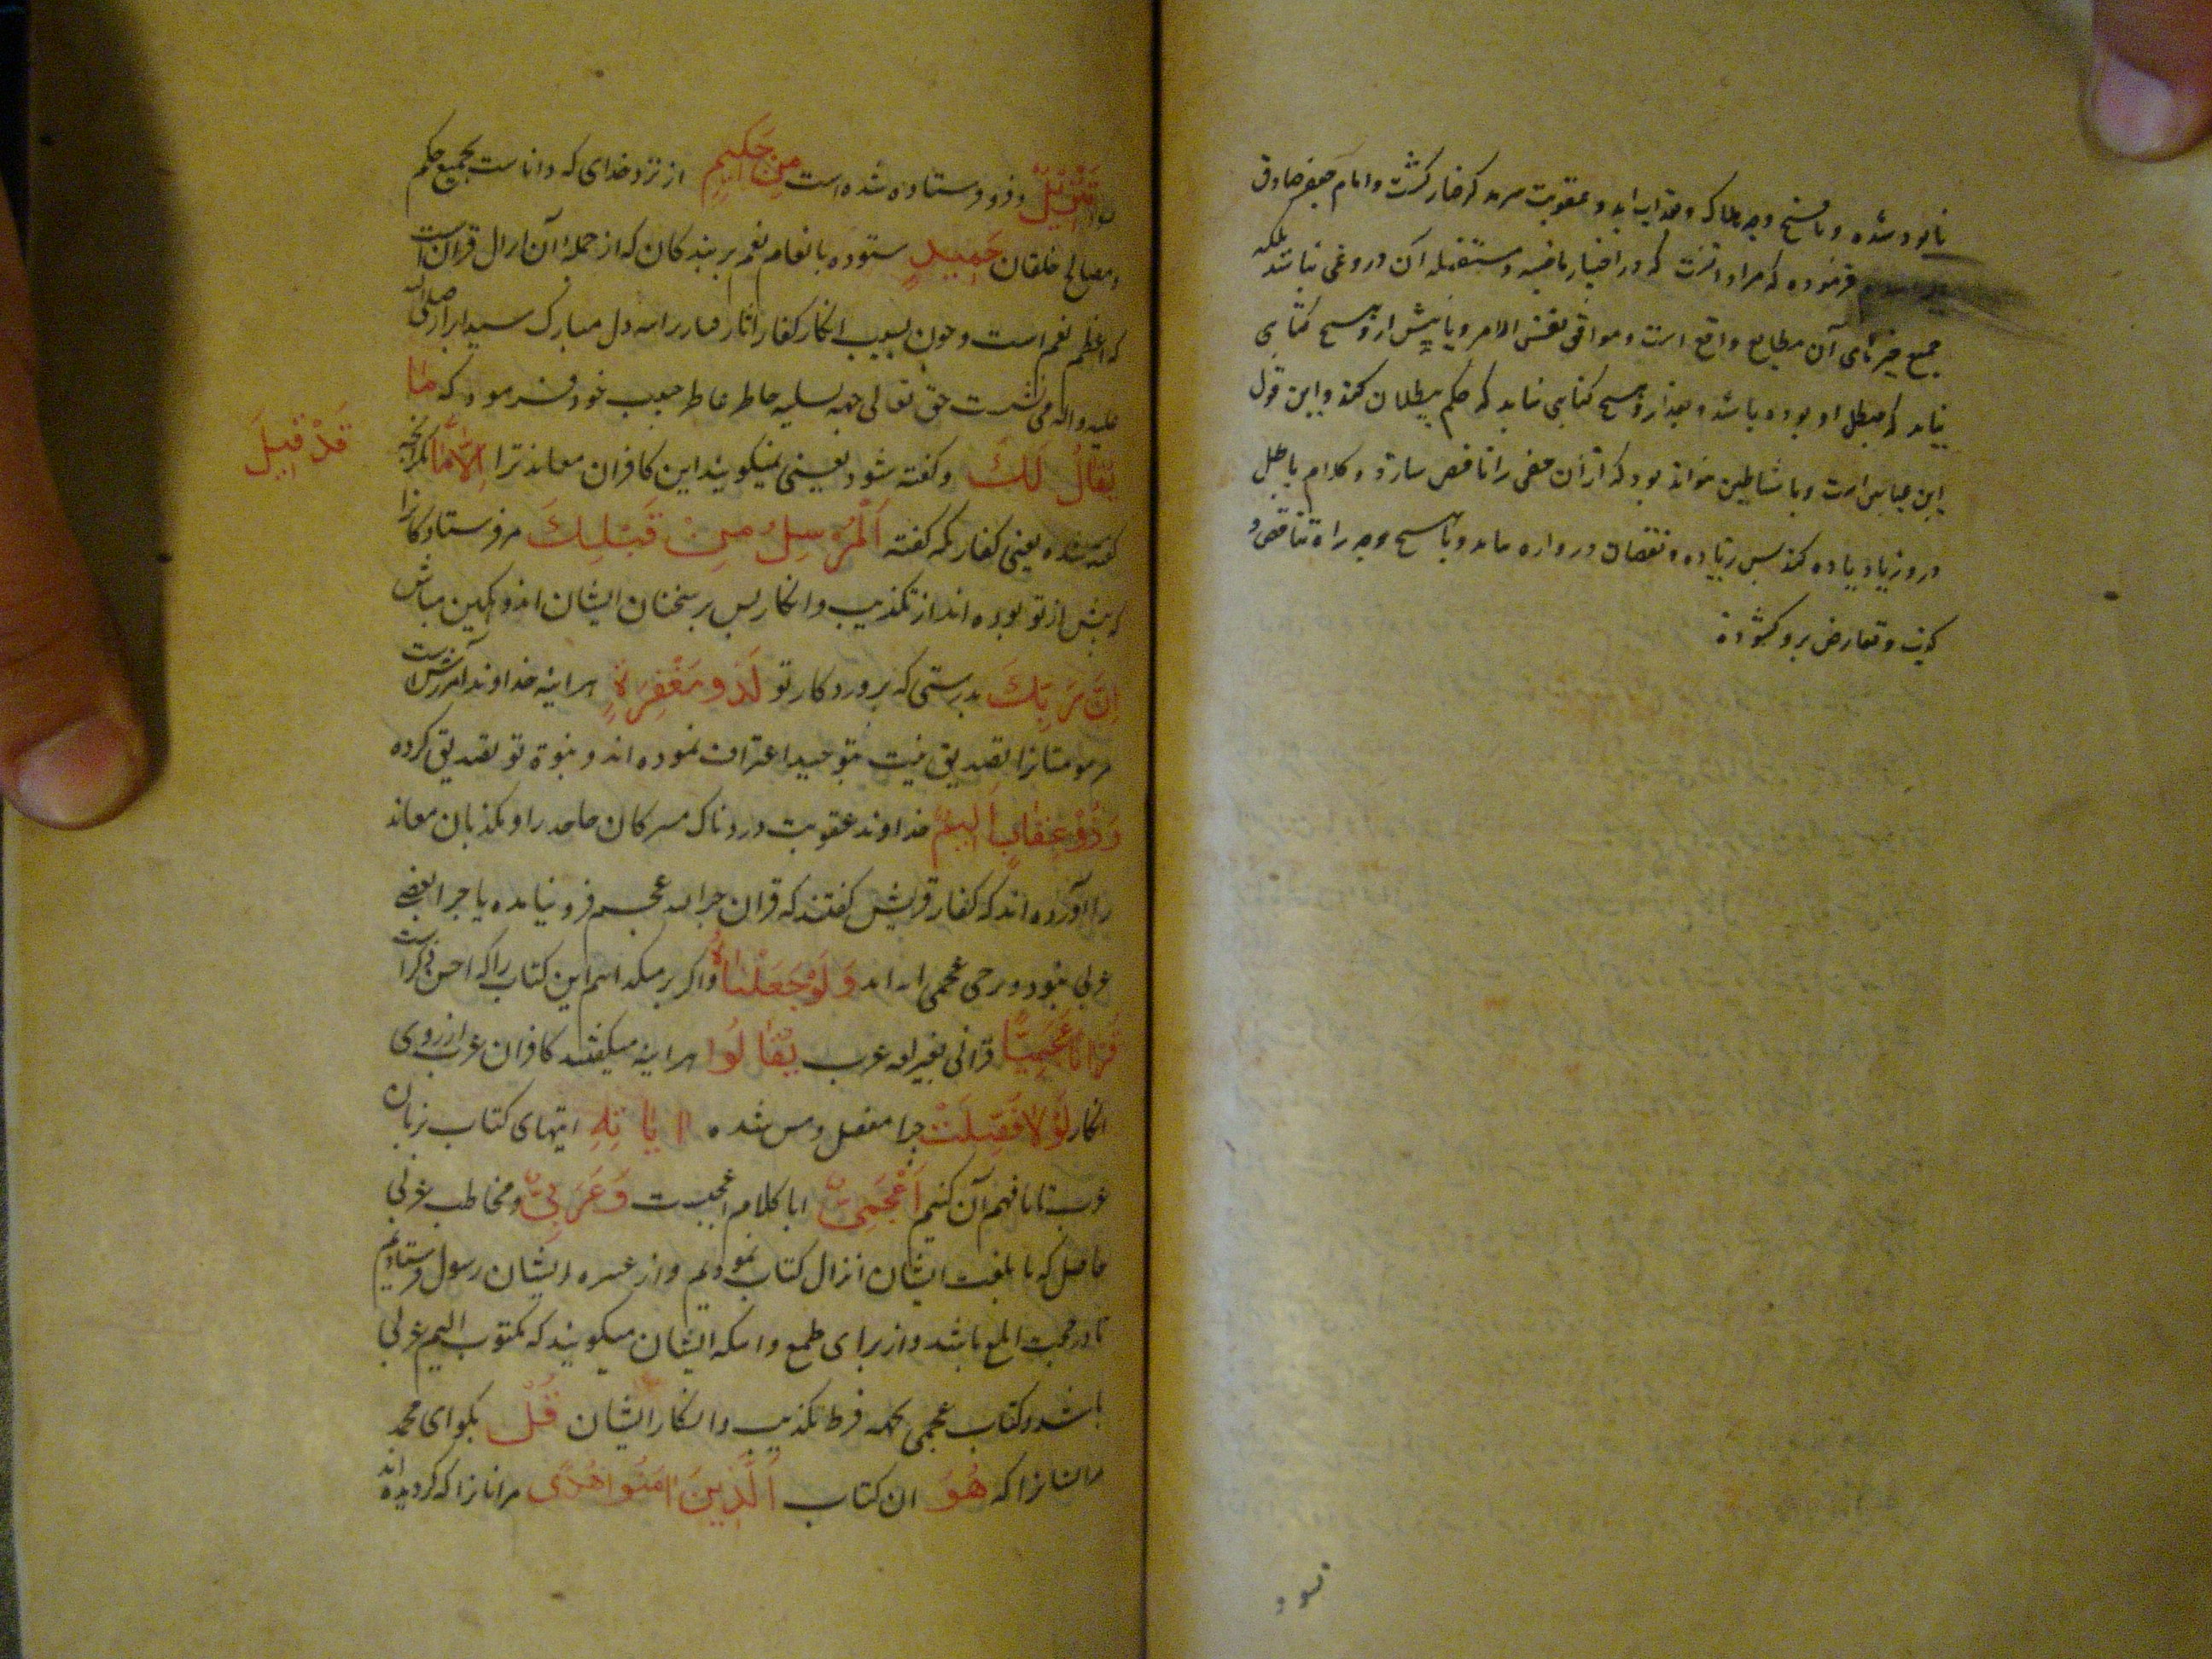 نابود شده و یا مسخ وجه هلاک و عذاب ابد و عقوبت سرمد گرفتار گشت و امام جعفر صادق
فرموده که مراد آنست که در اخبار ماضیه و مستقبله آن دروغی نباشد بلکه
جمیع خبرهای آن مطابق واقع است و موافق نفس الامر و یا پیش ازو هیچ کتابی
نیاید که مبطل او بوده باشد و بعد ازو هیچ کتابی نیاید که حکم ببطلان کند و این قول
ابن عباس است و یا شیاطین نتواند بود که از آن حقی را ناقص سازد و کلام باطل
درو زیاد کند پس زیاده و نقصان درو راه نیابد و یا هیچ وجه راه تناقض و
و تعارض برو نگشوده
تنزیل و فرو فرستاده شده است من حکیم از نزد خدای که داناست بجمیع حکم
و مصالح خلقان حمید ستوده بانعام نعم بر بندکان که از جمله آن انزال قرآن است
که اعظم نعم است و چون بسبب انکار کفار آثار دل مبارک سید ابرار صلی الله
علیه و اله می نشست حق تعالی جهه تسلیه خاطر عاطر حبیب خود فرمود که ما
یقال لک و کفته شود یعنی نمیکویند این کافران معاند ترا الا ما مکر آنچه
قد قیل
گفته شده یعنی کفار مکه کفته للرسل من قبلک مر فرستادکانرا
که پیش از تو بوده اند از تکذیب و انکار پس بر سخنان ایشان اندوهکین مباش
ان ربک بدرستی که پروردکار تو لذو مغفرة هراینه خداوند آمرزش است
مر مومنانرا بتوحید اعتراف نموده اند و بنبوة تو تصدیق کرده
و ذو عقاب الیم خداوند عقوبت دردناک مشرکان جاحد را و مکذبان معاند
را آورده اند که کفار قریش کفتند که قران چرا بلغه عجم فرو نیامده یا چرا بعضی
عربی نبود و برخی عجمی ولو جعلناه و اکر این کتاب را که
قرانا اعجمیا قرانی بغیر لغه عرب لقالوا هراینه میکفتند کافران عرب از روی
انکار لولا فصلت چرا مفصل و مبین نشده آیاته ایتهای کتاب بزبان
عرب تا ما فهم آن کنیم ءاعجمی ایا کلام اعجمیست و عربی و مخاطب عربی
حاصل که ما بلغت ایشان انزال کتاب نمودیم و از عشیره ایشان رسول فرستادیم
تا در حجت ابلغ باشد و از برای طمع ایشان میکویند که مکتوب الیهم عربی
باشد و کتاب عجمی بجهه فرط تکذیب و انکار ایشان قل بکو ای محمد
مر ایشانرا که هو ان کتاب للذین امنوا هدی مر انانرا که کرویده اند